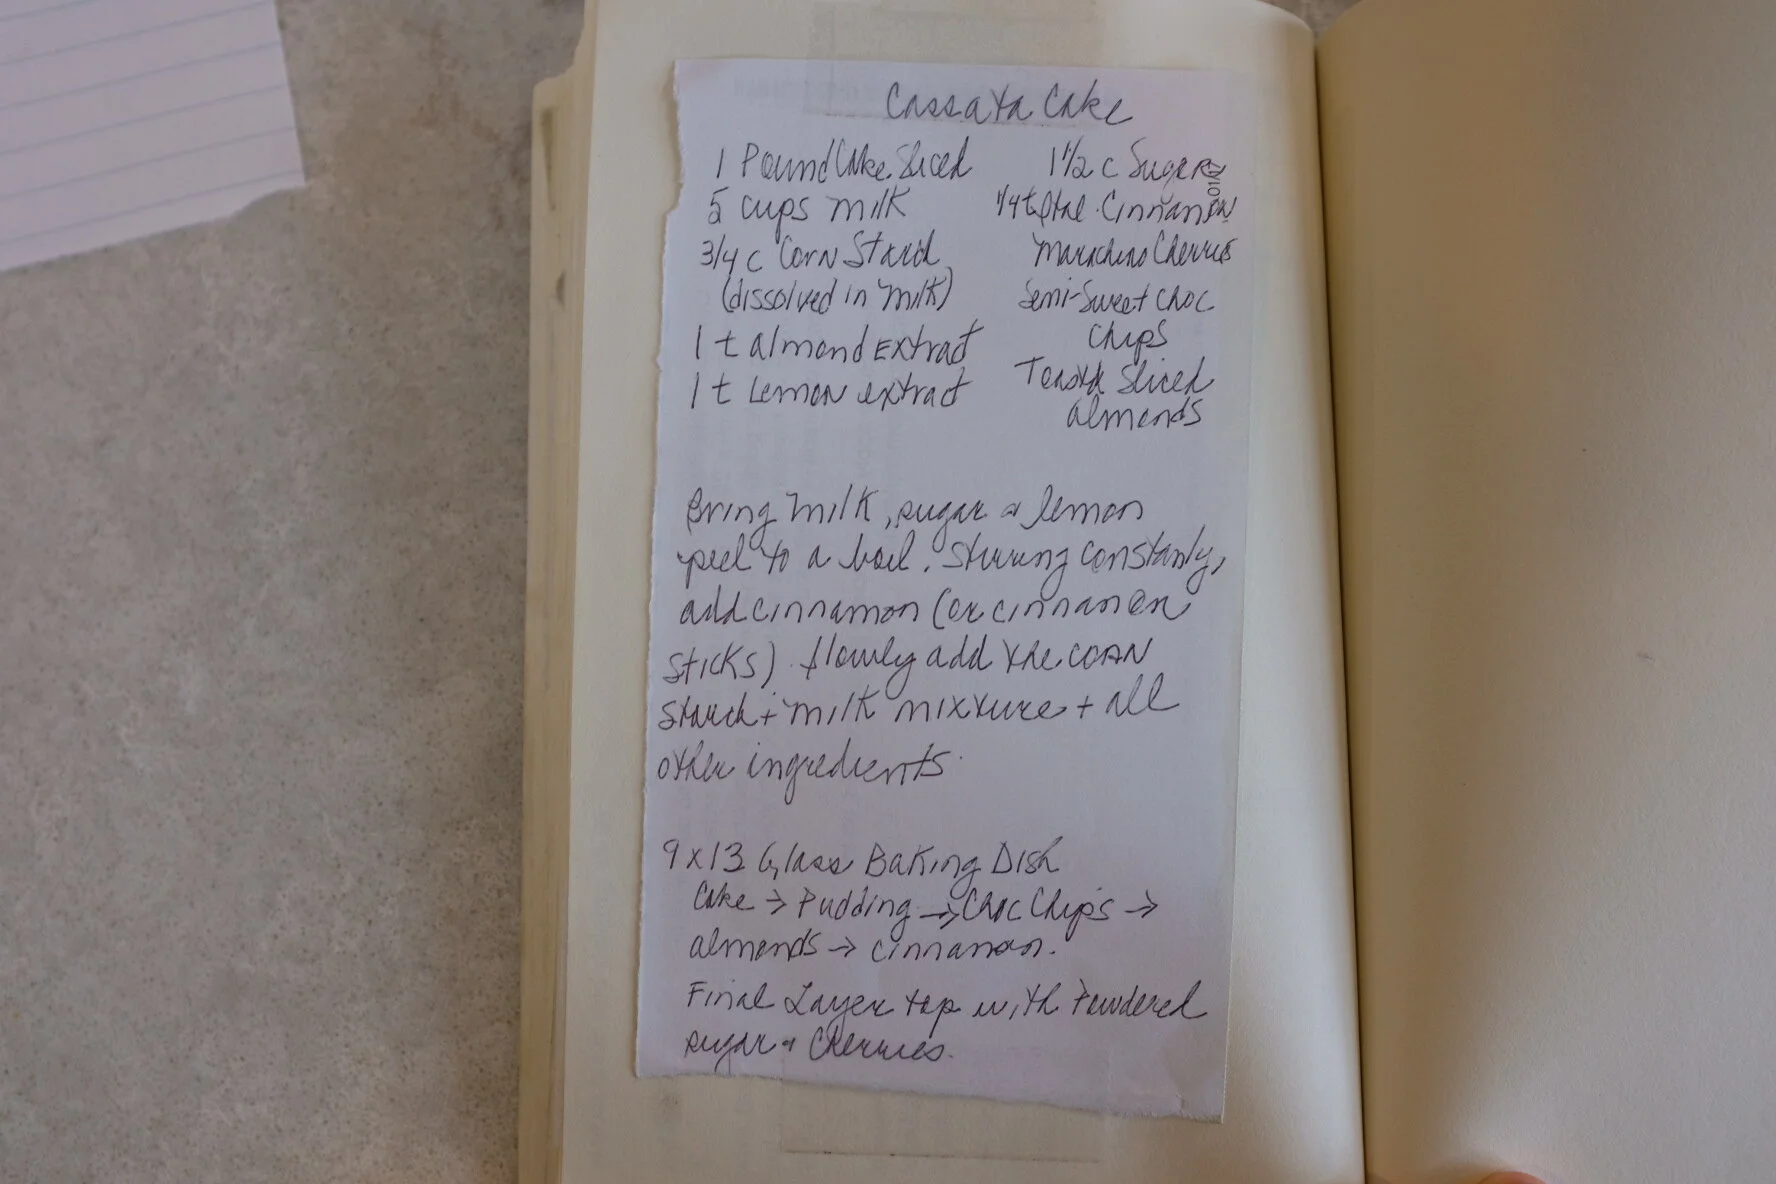 Cassata Cake
1 Pound Cake Sliced
5 cups milk
3/4 c Corn Starch
(dissolved in milk)
1 t almond Extract
1 t Lemon extract
1 1/2 c Sugar
1/4 t Cinnamon
Marachino Cherries
Semi-Sweet Choc
Chips
Toasted Sliced
almonds
Bring milk, sugar & lemon
peel to a boil. Stirring constantly,
add cinnamon (or cinnamon
sticks). Slowly add the corn
starch + milk mixture + all
other ingredients.
9 x 13 Glass Baking Dish
Cake → Pudding → Choc Chips →
almonds → cinnamon.
Final Layer top with Powdered
sugar & Cherries.